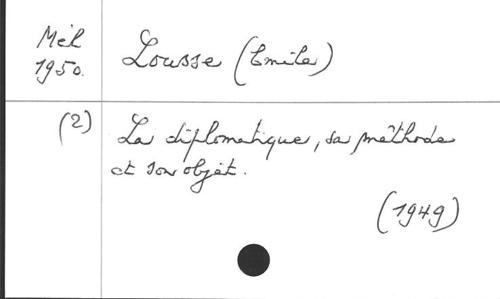 Mél
1950.
Lousse (Emile)
(2)
La diplomatique, sa méthode
et son objet.
(1949)